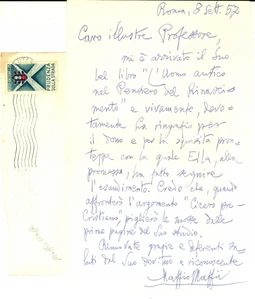 Roma, 8 Sett. 57
Caro illustre Professore,
mi è arrivato il Suo
bel libro "L'Uomo antico
nel Pensiero del Rinasci-
mento" e vivamente, devo-
tamente La ringrazio per
il dono e per la squisita pron-
tezza con la quale Ella, alla
promessa, ha fatto seguire
l'esaudimento. Credo che, quando
affronterò l'argomento "Cicero pre-
Cristiano", piglierò le mosse dalle
prime pagine del Suo studio.
Rinnovate grazie e deferenti sa-
luti dal Suo devoto e riconoscente
Maffio Maffii